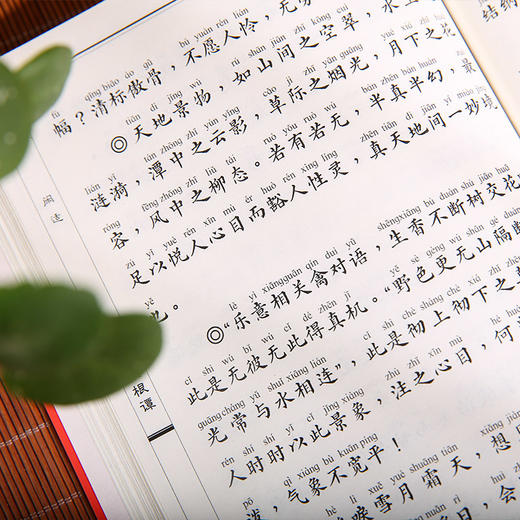 结纳
fú qīng biāo ào gǔ bù yuàn rén lián
幅？清标傲骨，不愿人怜，无
tiān dì jǐng wù rú shān jiān zhī kōng cuì shuǐ
◎天地景物，如山间之空翠，水
lián yī tán zhōng zhī yún yǐng cǎo jì zhī yān guāng yuè xià zhī huā
涟漪，潭中之云影，草际之烟光，月下之花
róng fēng zhōng zhī liǔ tài ruò yǒu ruò wú bàn zhēn bàn huàn zuì
容，风中之柳态。若有若无，半真半幻，最
zú yǐ yuè rén xīn mù ér huò rén xìng líng zhēn tiān dì jiān yī miào jìng
足以悦人心目而豁人性灵，真天地间一妙境
yě
也。
lè yì xiāng guān qín duì yǔ shēng xiāng bù duàn shù jiāo huā
◎“乐意相关禽对语，生香不断树交花
cǐ shì wú bǐ wú cǐ dé zhēn jī yě sè gèng wú shān gé duàn
此是无彼无此得真机。“野色更无山隔断
guāng cháng yǔ shuǐ xiāng lián cǐ shì chè shàng chè xià zhī
光常与水相连”，此是彻上彻下之
rén shí shí yǐ cǐ jǐng xiàng zhù zhī xīn mù hé
人时时以此景象，注之心目，何
qì xiàng bù kuān píng
泼，气象不宽平！
hè lì xuě yuè shuāng tiān xiǎng
唳雪月霜天，想
会
闲适
根谭